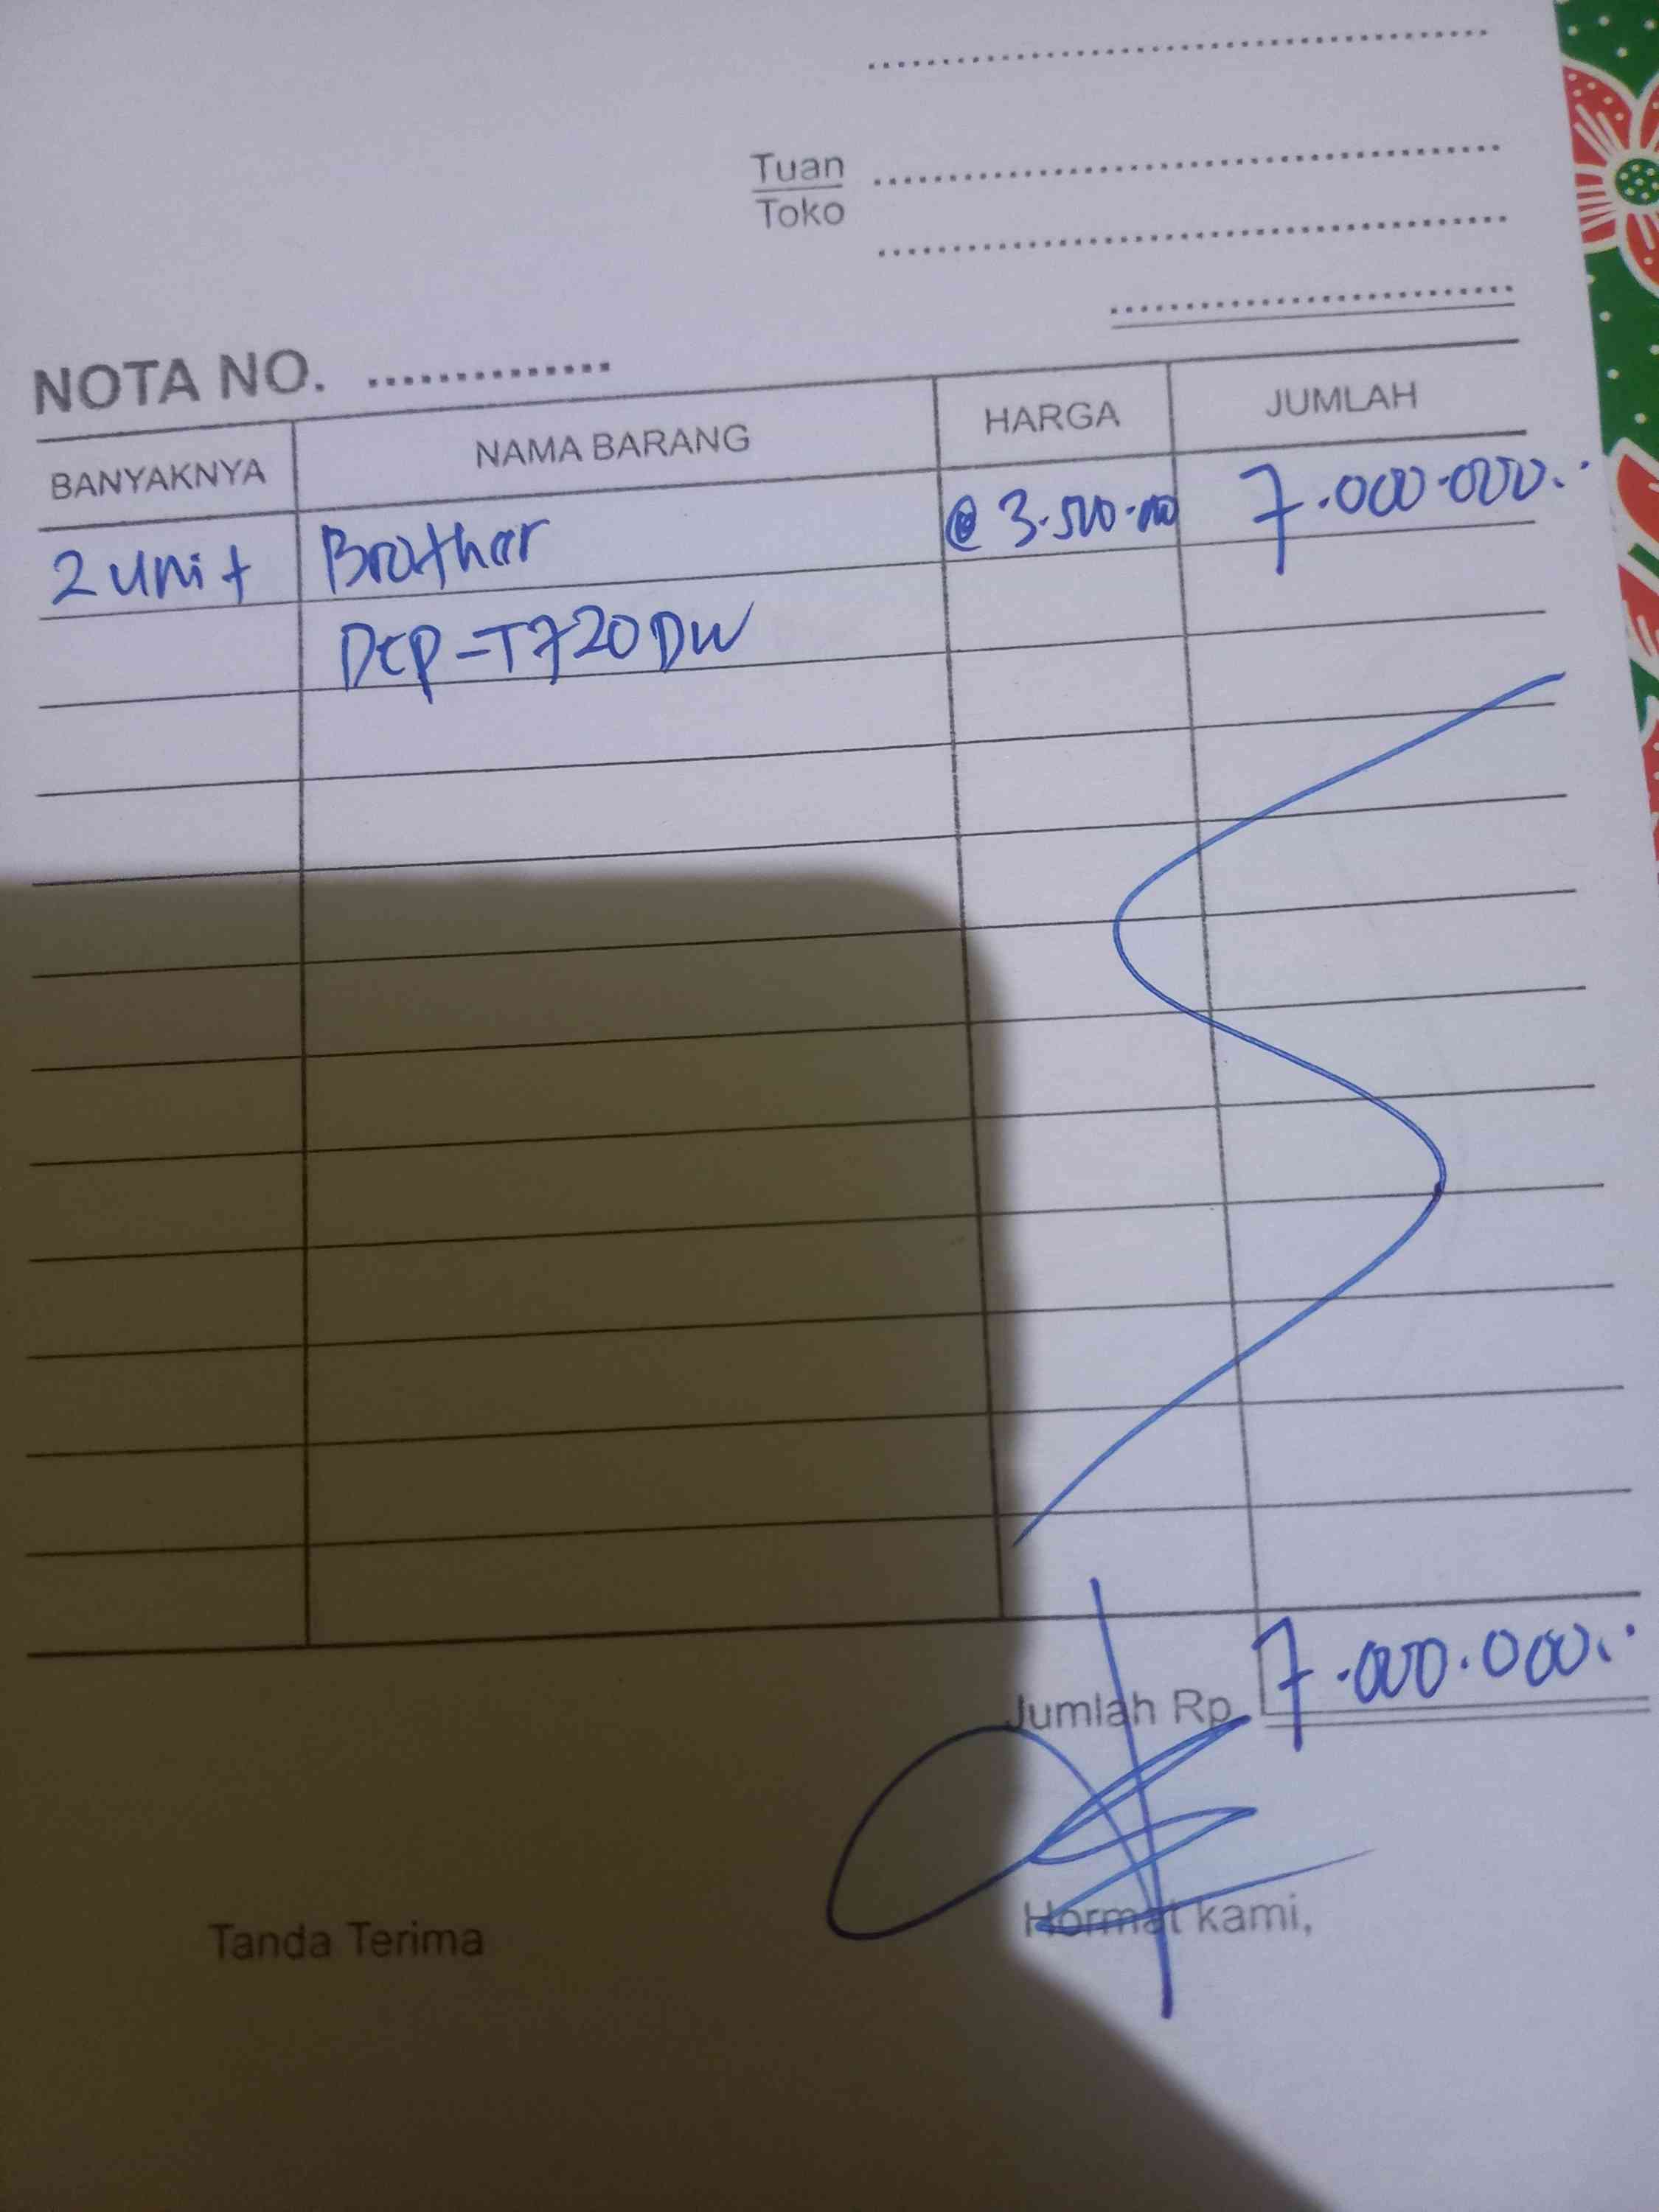 Tuan
Toko
NOTA NO. ..............
BANYAKNYA NAMA BARANG HARGA JUMLAH
2 unit Brother @ 3.500.000 7.000.000.-
DCP-T720DW
Jumlah Rp. 7.000.000.-
Tanda Terima Hormat kami,